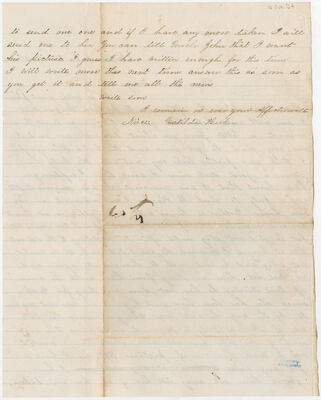 to send one one and if I have any more taken I will
send one to her You can tell Uncle John that I want
his picture I guess I have written enough for this time
I will write more this next time answer this as soon as
you get it and tell me all the news
write soon
I remain as ever your affectionate
Niece